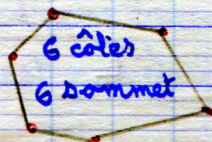 6 côtés
6 sommet